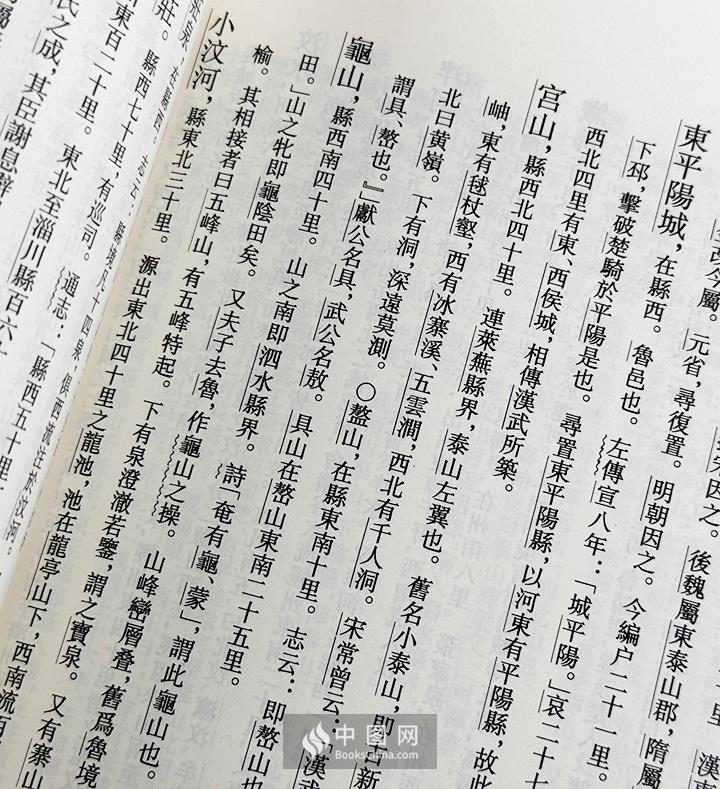 因之。後魏屬東泰山郡，隋屬
改今屬。元省，尋復置。明朝因之。今編户二十一里。
東平陽城，在縣西。魯邑也。左傳宣八年：「城平陽。」哀二十
下邳，擊破楚騎於平陽是也。尋置東平陽縣，以河東有平陽縣，故此
西北四里有東、西侯城，相傳漢武所築。
宫山，縣西北四十里。連萊蕪縣界，泰山左翼也。舊名小泰山，即古新
岫，東有毬杖壑，西有冰寨溪、五雲澗，西北有千人洞。宋常曾云：「漢武
北曰黄嶺。下有洞，深遠莫測。○嶅山，在縣東南十里。志云：即嶅山也
謂具、嶅也。』獻公名具，武公名敖。具山在嶅山東南二十五里。
龜山，縣西南四十里。山之南即泗水縣界。詩「奄有龜、蒙」，謂此龜山也。
田。」山之牝即龜陰田矣。又夫子去魯，作龜山之操。山峰巒層叠，舊爲魯境
榆。其相接者曰五峰山，有五峰特起。下有泉澄澈若鑒，謂之寶泉。又有寨山
小汶河，縣東北三十里。源出東北四十里之龍池，池在龍亭山下，西南流百
志云：縣境凡十四泉，俱西流注於汶河。
莊。縣西七十里，有巡司。通志：「縣西五十里
東百二十里。東北至淄川縣百六十
氏之成，其臣謝息
中图网
BooksChina.com